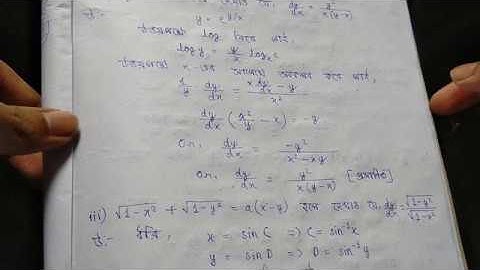 dy/dx = y²/x(y-x)
উঃ-
উভয়পক্ষে log নিয়ে পাই,
log y = y/x log e
উভয়পক্ষে x -এর সাপেক্ষে অবকলন করে পাই,
1/y dy/dx = (x dy/dx - y)/x²
dy/dx (x²/y - x) = -y
or, dy/dx = -y²/(x² - xy)
or, dy/dx = y²/x(y-x) [প্রমাণিত]
iii) √1-x² + √1-y² = a(x-y) হলে দেখাও যে, dy/dx = √1-y²/√1-x²
উঃ- ধরি, x = sin C => C = sin⁻¹x
y = sin D => D = sin⁻¹y